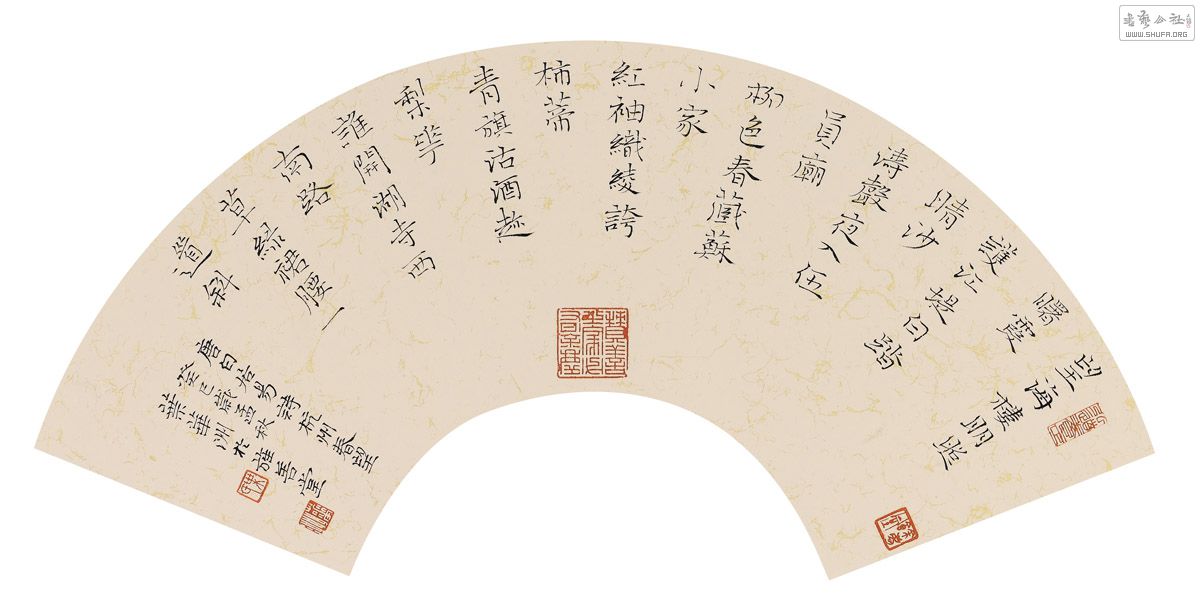 望海樓明照
曙霞
護江堤白踏
晴沙
濤聲夜入伍
員廟
柳色春藏蘇
小家
紅袖織綾誇
柿蒂
青旗沽酒趂
梨華
誰開湖寺西
南路
草綠裙腰一
道斜
唐白居易詩杭州春望
癸巳歲孟秋
葉華洲於雅善堂
書藝公社
WWW.SHUFA.ORG